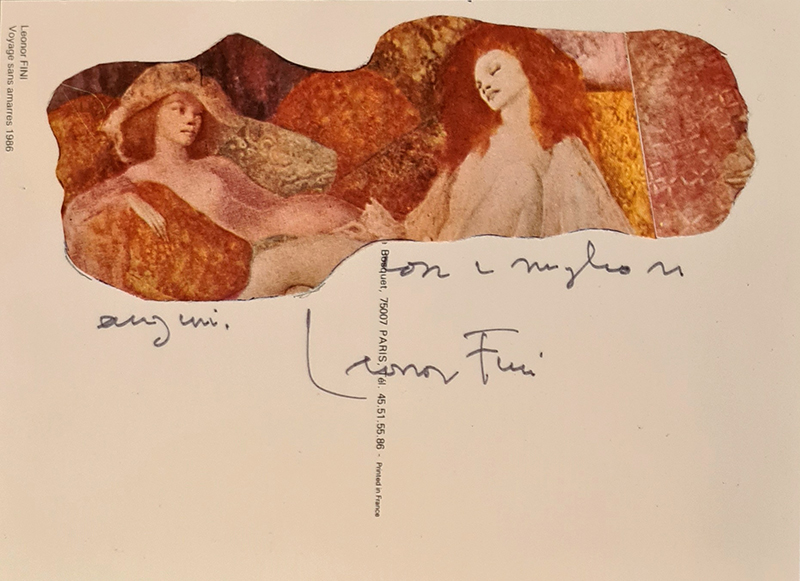 Leonor FINI
Voyage sans amarres 1986
con i migliori
auguri.
Leonor Fini
Bosquet, 75007 PARIS, Tél. 45.51.55.86 - Printed in France